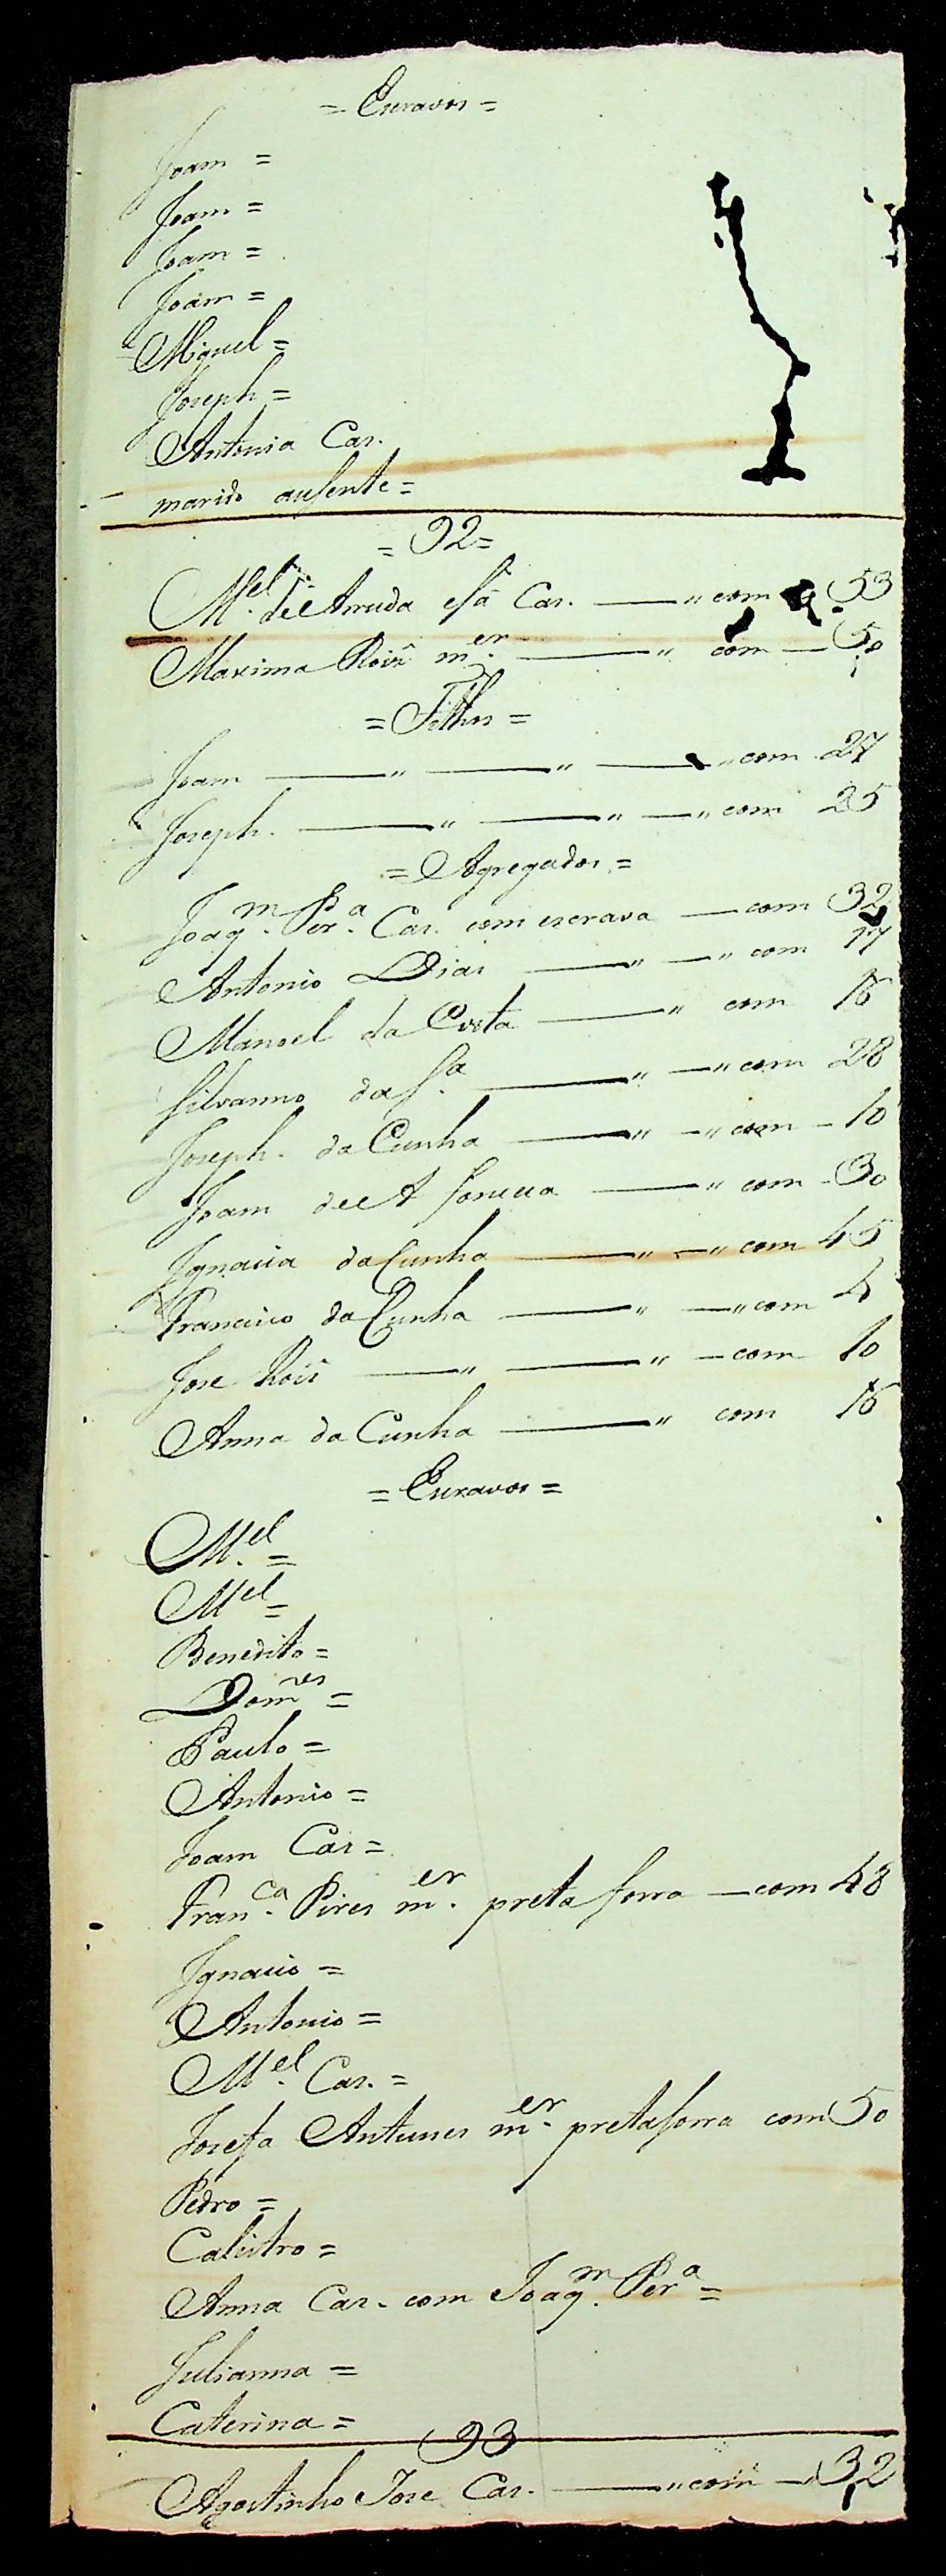 = Escravos =
Joam =
Joam =
Joam =
Joam =
Miguel =
Joseph =
Antonia Cas.
marido ausente =
= 92 =
M.el de Arruda e Sá Cas. —— " com 53
Maxima Roiz m.er —— " com — 50
= Filhos =
Joam —— " —— " —— " com 27
Joseph. —— " —— " — " com 25
= Agregados =
Joaq.m Per.a Cas. com escrava — com 32
Antonio Dias —— " — " com 17
Manoel da Costa —— " com 16
Silvanno da S.a —— " — " com 28
Joseph. da Cunha —— " — " com - 10
Joam de A fonceca —— " com - 30
Ignacia da Cunha —— " — " com 45
Francisco da Cunha —— " — " com 4
Jose Roiz —— " —— " — com 10
Anna da Cunha —— " com 16
= Escravos =
M.el =
M.el =
Benedito =
Dom.os =
Paulo =
Antonio =
Joam Cas =
Fran.ca Pires m.er preta forra — com 48
Ignacio =
Antonio =
M.el Cas. =
Josefa Antunes m.er preta forra com 50
Pedro =
Calistro =
Anna Cas. com Joaq.m Per.a =
Julianna =
Caterina =
93
Agostinho Jose Cas. —— " com — 32